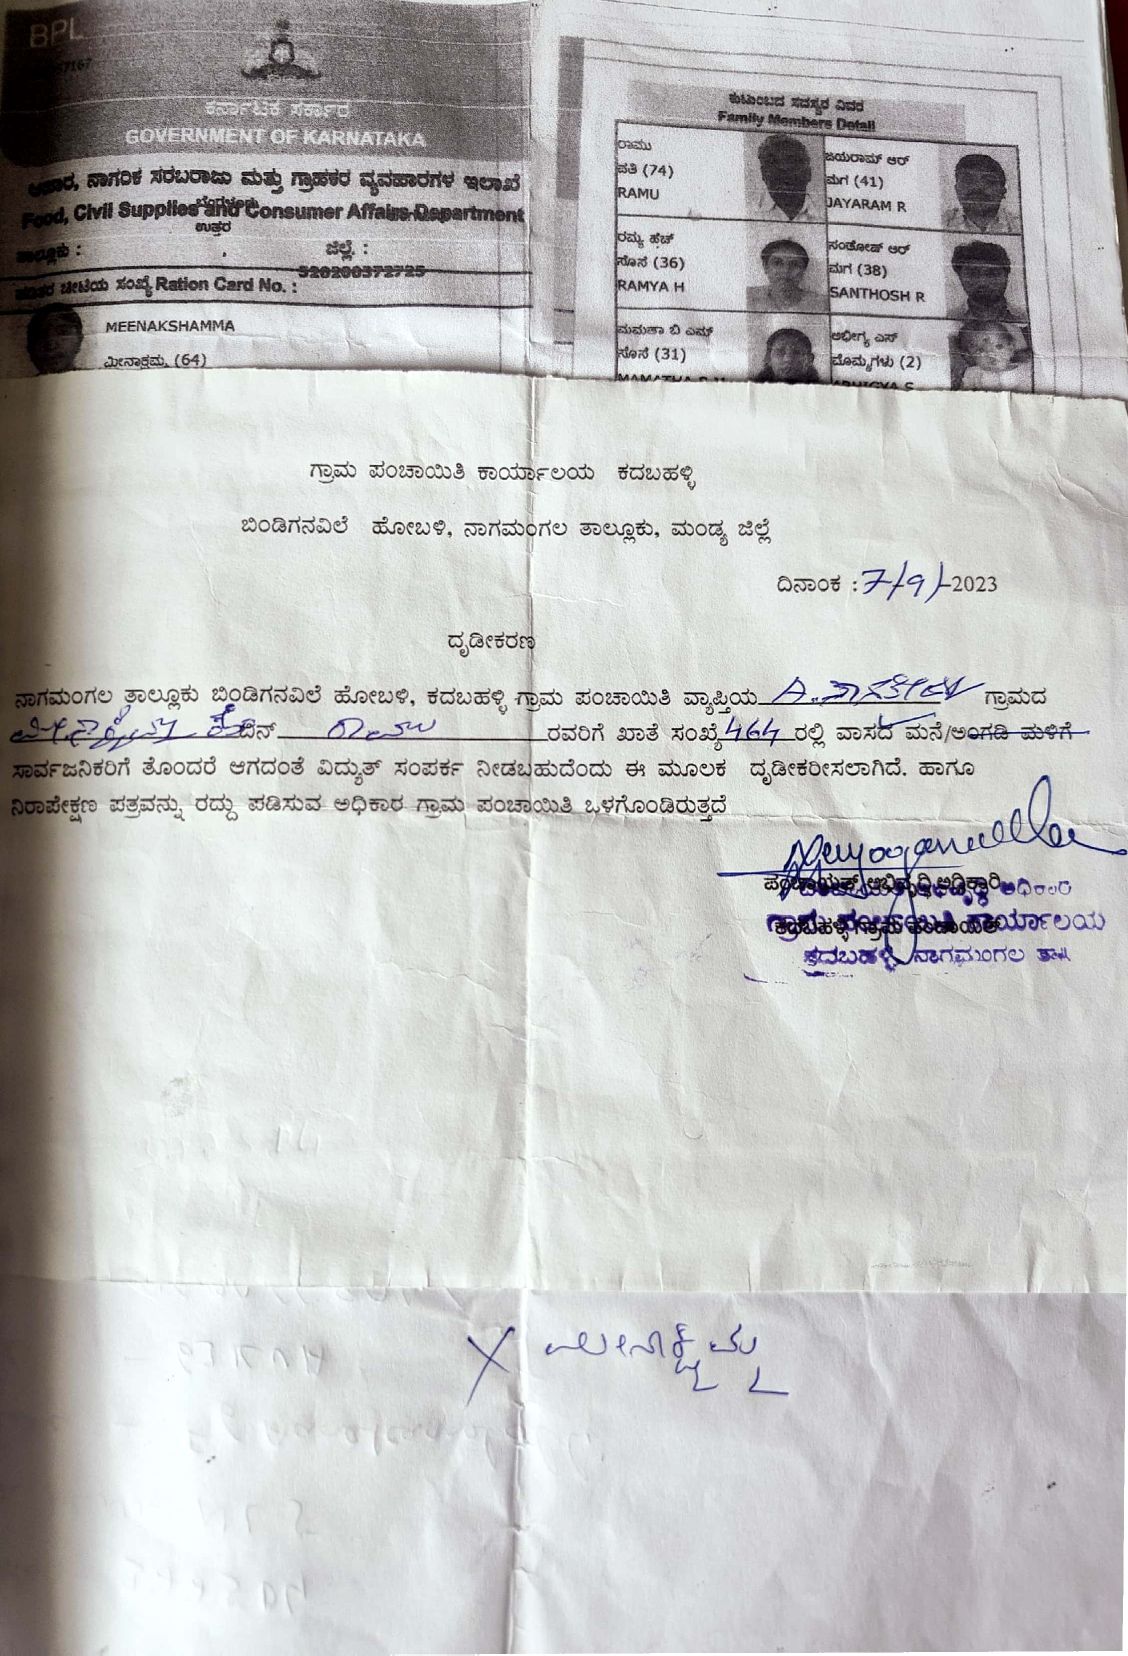 BPL
ಕರ್ನಾಟಕ ಸರ್ಕಾರ
GOVERNMENT OF KARNATAKA
ಆಹಾರ, ನಾಗರಿಕ ಸರಬರಾಜು ಮತ್ತು ಗ್ರಾಹಕರ ವ್ಯವಹಾರಗಳ ಇಲಾಖೆ
Food, Civil Supplies and Consumer Affairs Department
ಉತ್ತರ
ತಾಲ್ಲೂಕು : ಜಿಲ್ಲೆ :
520200372725
ಪಡಿತರ ಚೀಟಿಯ ಸಂಖ್ಯೆ Ration Card No. :
MEENAKSHAMMA
ಮೀನಾಕ್ಷಮ್ಮ (64)
ಕುಟುಂಬದ ಸದಸ್ಯರ ವಿವರ
Family Members Detail
ರಾಮು
ಪತಿ (74)
RAMU
ಜಯರಾಮ್ ಆರ್
ಮಗ (41)
JAYARAM R
ರಮ್ಯ ಹೆಚ್
ಸೊಸೆ (36)
RAMYA H
ಸಂತೋಷ್ ಆರ್
ಮಗ (38)
SANTHOSH R
ಮಮತಾ ಬಿ ಎಮ್
ಸೊಸೆ (31)
ಅಭಿಗ್ಯ ಎಸ್
ಮೊಮ್ಮಗಳು (2)
ಗ್ರಾಮ ಪಂಚಾಯಿತಿ ಕಾರ್ಯಾಲಯ ಕದಬಹಳ್ಳಿ
ಬಿಂಡಿಗನವಿಲೆ ಹೋಬಳಿ, ನಾಗಮಂಗಲ ತಾಲ್ಲೂಕು, ಮಂಡ್ಯ ಜಿಲ್ಲೆ
ದಿನಾಂಕ : 7/9/-2023
ದೃಡೀಕರಣ
ನಾಗಮಂಗಲ ತಾಲ್ಲೂಕು ಬಿಂಡಿಗನವಿಲೆ ಹೋಬಳಿ, ಕದಬಹಳ್ಳಿ ಗ್ರಾಮ ಪಂಚಾಯಿತಿ ವ್ಯಾಪ್ತಿಯ ಗ್ರಾಮದ
ಮೀನಾಕ್ಷಮ್ಮ ಕೋಂ ರಾಮು ರವರಿಗೆ ಖಾತೆ ಸಂಖ್ಯೆ 464 ರಲ್ಲಿ ವಾಸದ ಮನೆ/ಅಂಗಡಿ ಮಳಿಗೆ
ಸಾರ್ವಜನಿಕರಿಗೆ ತೊಂದರೆ ಆಗದಂತೆ ವಿದ್ಯುತ್ ಸಂಪರ್ಕ ನೀಡಬಹುದೆಂದು ಈ ಮೂಲಕ ದೃಡೀಕರೀಸಲಾಗಿದೆ. ಹಾಗೂ
ನಿರಾಪೇಕ್ಷಣ ಪತ್ರವನ್ನು ರದ್ದು ಪಡಿಸುವ ಅಧಿಕಾರ ಗ್ರಾಮ ಪಂಚಾಯಿತಿ ಒಳಗೊಂಡಿರುತ್ತದೆ
ಪಂಚಾಯತ್ ಅಭಿವೃದ್ಧಿ ಅಧಿಕಾರಿ
ಕದಬಹಳ್ಳಿ ಗ್ರಾಮ ಪಂಚಾಯಿತಿ
ಗ್ರಾಮ ಪಂಚಾಯಿತಿ ಕಾರ್ಯಾಲಯ
ಕದಬಹಳ್ಳಿ ನಾಗಮಂಗಲ ತಾ॥
X ಮೀನಾಕ್ಷಮ್ಮ